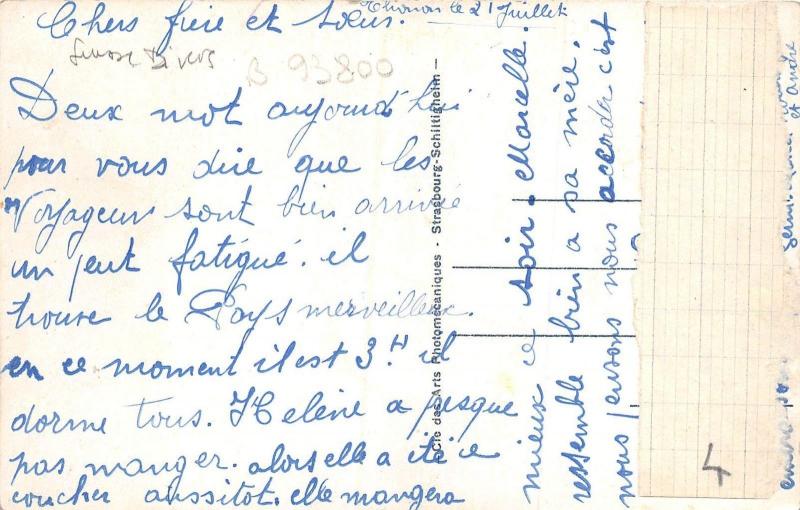 Thonon le 21 Juillet
Chers frère et sœur.
Suisse Divers
B 93800
Deux mot aujourd'hui
pour vous dire que les
Voyageur sont bien arrivée
un peut fatigué. il
trouve le Pays merveilleux.
en ce moment il est 3H il
dorme tous. Helène a presque
pas manger. alors elle a été ce
coucher aussitot. elle mangera
mieux ce soir. Marcelle.
ressemble bien a sa mère.
nous pensons nous accorder c'est
Cie des Arts Photomécaniques - Strasbourg-Schiltigheim -
et andré
4